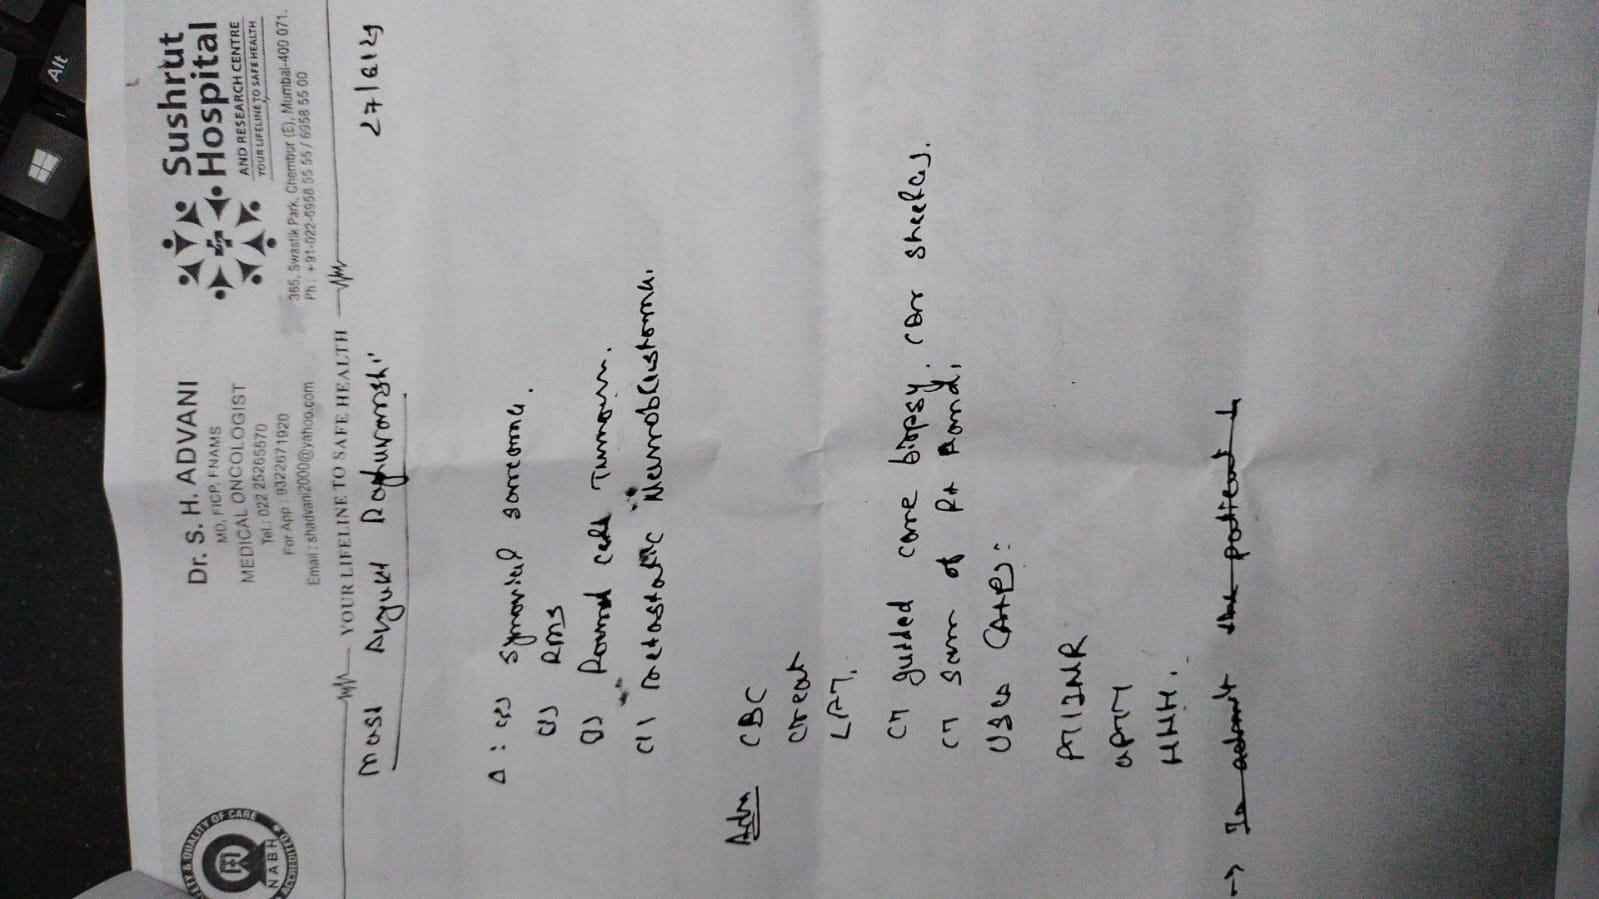 Alt
SAFETY & QUALITY OF CARE
NABH
ACCREDITED
Dr. S. H. ADVANI
MD, FICP, FNAMS
MEDICAL ONCOLOGIST
Tel.: 022 25265570
For App : 9322671920
Email : shadvani2000@yahoo.com
Sushrut
Hospital
AND RESEARCH CENTRE
YOUR LIFELINE TO SAFE HEALTH
365, Swastik Park, Chembur (E), Mumbai-400 071.
Ph : +91-022-6958 55 55 / 6958 55 00
YOUR LIFELINE TO SAFE HEALTH
Mast Raghuvanshi
Δ : Synovial sarcoma.
RMS
Round cell Tumour.
metastatic Neuroblastoma.
Adv CBC
Creat
LFT.
CT guided core biopsy.
CT Scan of Rt Hand.
USG (A+P) :
PT/INR
aPTT
HHH.
→ To admit the patient